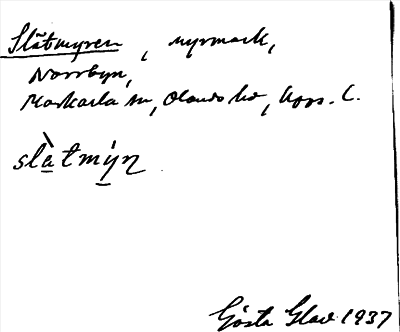 Slåtmyren, myrmark,
Norrbyn,
Markarla sn, Olands hd, Upps. l.
slàtmýn
Gösta Glad 1937